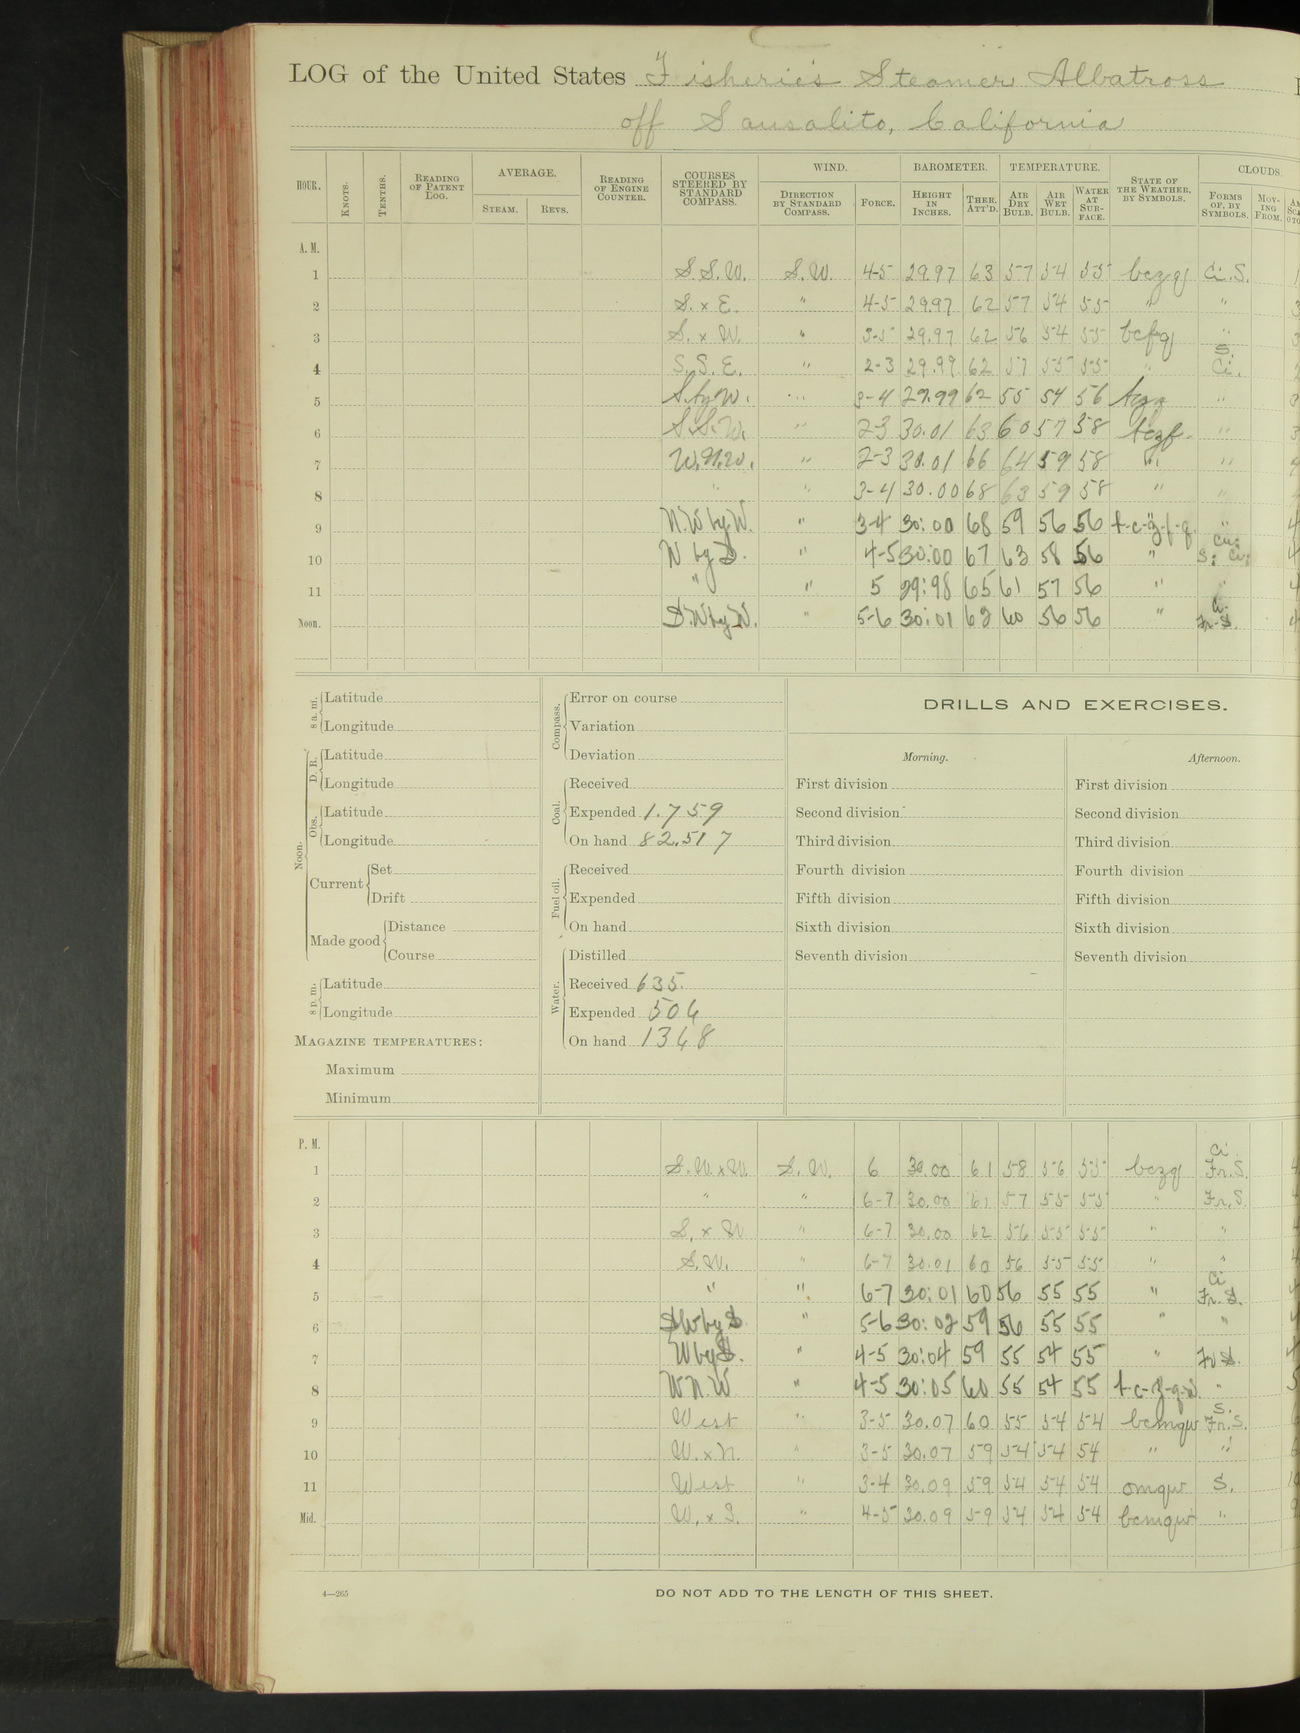 LOG of the United States Fisheries Steamer Albatross
off Sausalito, California
HOUR. KNOTS. TENTHS. READING OF PATENT LOG. AVERAGE. STEAM. REVS. READING OF ENGINE COUNTER. COURSES STEERED BY STANDARD COMPASS. WIND. DIRECTION BY STANDARD COMPASS. FORCE. BAROMETER. HEIGHT IN INCHES. THER. ATT'D. TEMPERATURE. AIR DRY BULB. AIR WET BULB. WATER AT SURFACE. STATE OF THE WEATHER, BY SYMBOLS. CLOUDS. FORMS OF, BY SYMBOLS. MOVING FROM.
A. M.
1 S.S.W. S.W. 4-5 29.97 63 57 54 55 bczq Ci.S.
2 S. x E. " 4-5 29.97 62 57 54 55 " "
3 S. x W. " 3-5 29.97 62 56 54 55 bcfq "
4 S.S.E. " 2-3 29.99 62 57 55 55 " S. Ci.
5 S.by W. " 3-4 29.99 62 55 54 56 "
6 S.S.W. " 2-3 30.01 63 60 57 58 bczf "
7 W.N.W. " 2-3 30.01 66 64 59 58 " "
8 " " 3-4 30.00 68 63 59 58 " "
9 N.W by W. " 3-4 30:00 68 59 56 56 b-c-z-f-q. "
10 W by S. " 4-5 30:00 67 63 58 56 " S: Ci: Cu:
11 " " 5 29:98 65 61 57 56 " "
Noon. S.W by W. " 5-6 30:01 62 60 56 56 " Ci. Fr.-S.
8 a. m. Latitude
Longitude
Noon.
D. R. Latitude
Longitude
Obs. Latitude
Longitude
Current Set
Drift
Made good Distance
Course
8 p. m. Latitude
Longitude
MAGAZINE TEMPERATURES:
Maximum
Minimum
Compass. Error on course
Variation
Deviation
Coal. Received
Expended 1.759
On hand 82.517
Fuel oil. Received
Expended
On hand
Water. Distilled
Received 635.
Expended 506
On hand 1368
DRILLS AND EXERCISES.
Morning. Afternoon.
First division First division
Second division Second division
Third division Third division
Fourth division Fourth division
Fifth division Fifth division
Sixth division Sixth division
Seventh division Seventh division
P. M.
1 S.W. x W. S.W. 6 30.00 61 58 56 55 bczq Ci. Fr.S.
2 " " 6-7 30.00 61 57 55 55 " Fr.S.
3 S. x W " 6-7 30.00 62 56 55 55 " "
4 S.W. " 6-7 30.01 60 56 55 55 " "
5 " " 6-7 30:01 60 56 55 55 " Ci Fr.S.
6 SW by S " 5-6 30:02 59 56 55 55 " "
7 W by S. " 4-5 30:04 59 55 54 55 " Fr S.
8 W N.W " 4-5 30:05 60 55 54 55 "
9 West " 3-5 30.07 60 55 54 54 bcmqw S. Fr.S.
10 W. x N. " 3-5 30.07 59 54 54 54 " "
11 West " 3-4 30.09 59 54 54 54 omqw S.
Mid. W. x S. " 4-5 30.09 59 54 54 54 bcmqw "
4—265
DO NOT ADD TO THE LENGTH OF THIS SHEET.